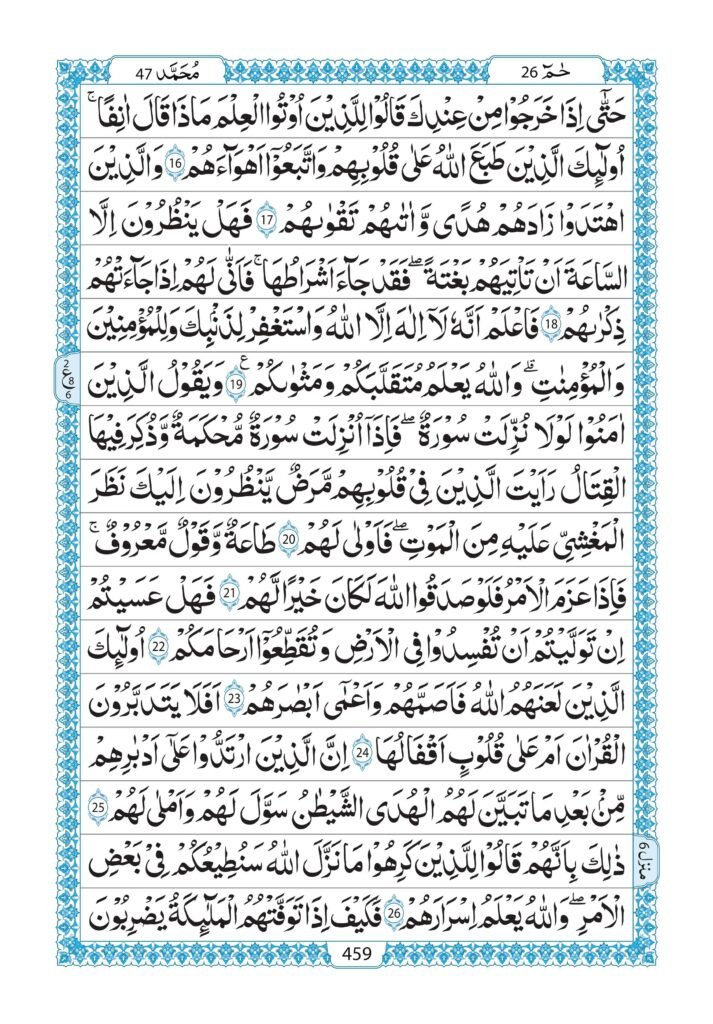 مُحَمَّد 47
حٰمٓ 26
حَتّٰٓى اِذَا خَرَجُوْا مِنْ عِنْدِكَ قَالُوْا لِلَّذِيْنَ اُوْتُوا الْعِلْمَ مَاذَا قَالَ اٰنِفًا ۚ
اُولٰٓئِكَ الَّذِيْنَ طَبَعَ اللّٰهُ عَلٰى قُلُوْبِهِمْ وَاتَّبَعُوْٓا اَهْوَآءَهُمْ 16 وَالَّذِيْنَ
اهْتَدَوْا زَادَهُمْ هُدًى وَّاٰتٰىهُمْ تَقْوٰىهُمْ 17 فَهَلْ يَنْظُرُوْنَ اِلَّا
السَّاعَةَ اَنْ تَاْتِيَهُمْ بَغْتَةً ۖ فَقَدْ جَآءَ اَشْرَاطُهَا ۚ فَاَنّٰى لَهُمْ اِذَا جَآءَتْهُمْ
ذِكْرٰىهُمْ 18 فَاعْلَمْ اَنَّهٗ لَآ اِلٰهَ اِلَّا اللّٰهُ وَاسْتَغْفِرْ لِذَنْۢبِكَ وَلِلْمُؤْمِنِيْنَ
وَالْمُؤْمِنٰتِ ۗ وَاللّٰهُ يَعْلَمُ مُتَقَلَّبَكُمْ وَمَثْوٰىكُمْ ࣖ 19 وَيَقُوْلُ الَّذِيْنَ
2 ع 8 6
اٰمَنُوْا لَوْلَا نُزِّلَتْ سُوْرَةٌ ۖ فَاِذَآ اُنْزِلَتْ سُوْرَةٌ مُّحْكَمَةٌ وَّذُكِرَ فِيْهَا
الْقِتَالُ رَاَيْتَ الَّذِيْنَ فِيْ قُلُوْبِهِمْ مَّرَضٌ يَّنْظُرُوْنَ اِلَيْكَ نَظَرَ
الْمَغْشِيِّ عَلَيْهِ مِنَ الْمَوْتِ ۖ فَاَوْلٰى لَهُمْ 20 طَاعَةٌ وَّقَوْلٌ مَّعْرُوْفٌ ۚ
فَاِذَا عَزَمَ الْاَمْرُ فَلَوْ صَدَقُوا اللّٰهَ لَكَانَ خَيْرًا لَّهُمْ 21 فَهَلْ عَسَيْتُمْ
اِنْ تَوَلَّيْتُمْ اَنْ تُفْسِدُوْا فِى الْاَرْضِ وَتُقَطِّعُوْٓا اَرْحَامَكُمْ 22 اُولٰٓئِكَ
الَّذِيْنَ لَعَنَهُمُ اللّٰهُ فَاَصَمَّهُمْ وَاَعْمٰٓى اَبْصٰرَهُمْ 23 اَفَلَا يَتَدَبَّرُوْنَ
الْقُرْاٰنَ اَمْ عَلٰى قُلُوْبٍ اَقْفَالُهَا 24 اِنَّ الَّذِيْنَ ارْتَدُّوْا عَلٰٓى اَدْبٰرِهِمْ
مِّنْۢ بَعْدِ مَا تَبَيَّنَ لَهُمُ الْهُدَى الشَّيْطٰنُ سَوَّلَ لَهُمْ وَاَمْلٰى لَهُمْ 25
ذٰلِكَ بِاَنَّهُمْ قَالُوْا لِلَّذِيْنَ كَرِهُوْا مَا نَزَّلَ اللّٰهُ سَنُطِيْعُكُمْ فِيْ بَعْضِ
منزل 6
الْاَمْرِ ۖ وَاللّٰهُ يَعْلَمُ اِسْرَارَهُمْ 26 فَكَيْفَ اِذَا تَوَفَّتْهُمُ الْمَلٰٓئِكَةُ يَضْرِبُوْنَ
459